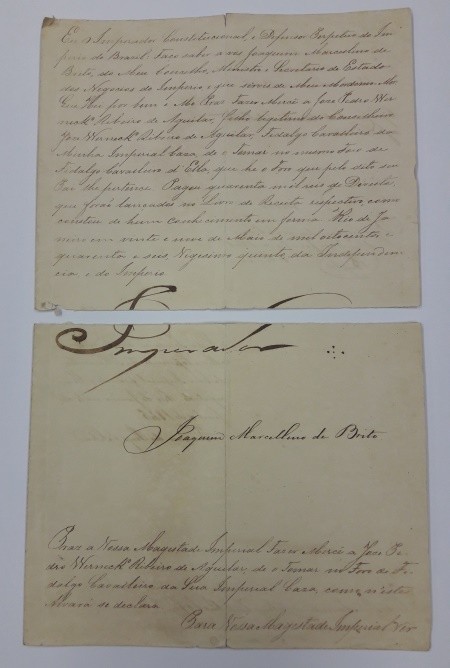 Eu o Imperador Constitucional, e Defensor Perpetuo do Im-
perio do Brasil Faço saber a vós Joaquim Marcellino de
Brito, do Meu Conselho, Ministro e Secretario de Estado
dos Negocios do Imperio e que servis de Meu Mordomo Mór
Que Hei por bem e Me Praz Fazer Mercê a José Pedro Wer-
neck Ribeiro de Aguilar, Filho legitimo do Conselheiro
José Werneck Ribeiro de Aguilar, Fidalgo Cavalleiro da
Minha Imperial Casa, de o Tomar no mesmo Foro de
Fidalgo Cavalleiro d'Ella, que he o Foro que pelo dito seu
Pai lhe pertence. Pagou quarenta mil reis de Direitos,
que forão lançados no Livro de Receita respectivo, como
constou de hum conhecimento em forma. Rio de Ja-
neiro em vinte e nove de Maio de mil oitocentos e
quarenta e seis, Vigesimo quinto da Independen-
cia e do Imperio
Imperador
Joaquim Marcellino de Brito
Praz a Vossa Magestade Imperial Fazer Mercê a José Pe-
dro Werneck Ribeiro de Aguilar, de o Tomar no Foro de Fi-
dalgo Cavalleiro da Sua Imperial Casa, como n'este
Alvará se declara
Para Vossa Magestade Imperial Ver